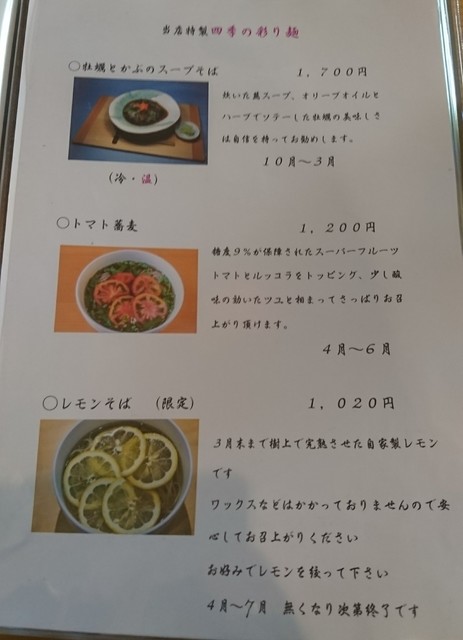 当店特製四季の彩り麺
○牡蠣とかぶのスープそば 1,700円
炊いた蕪スープ、オリーブオイルと
ハーブでソテーした牡蠣の美味しさ
は自信を持ってお勧めします。
10月～3月
(冷・温)
○トマト蕎麦 1,200円
糖度9%が保障されたスーパーフルーツ
トマトとルッコラをトッピング、少し酸
味の効いたツユと相まってさっぱりお召
上がり頂けます。
4月～6月
○レモンそば (限定) 1,020円
3月末まで樹上で完熟させた自家製レモン
です
ワックスなどはかかっておりませんので安
心してお召上がりください
お好みでレモンを絞って下さい
4月～7月 無くなり次第終了です